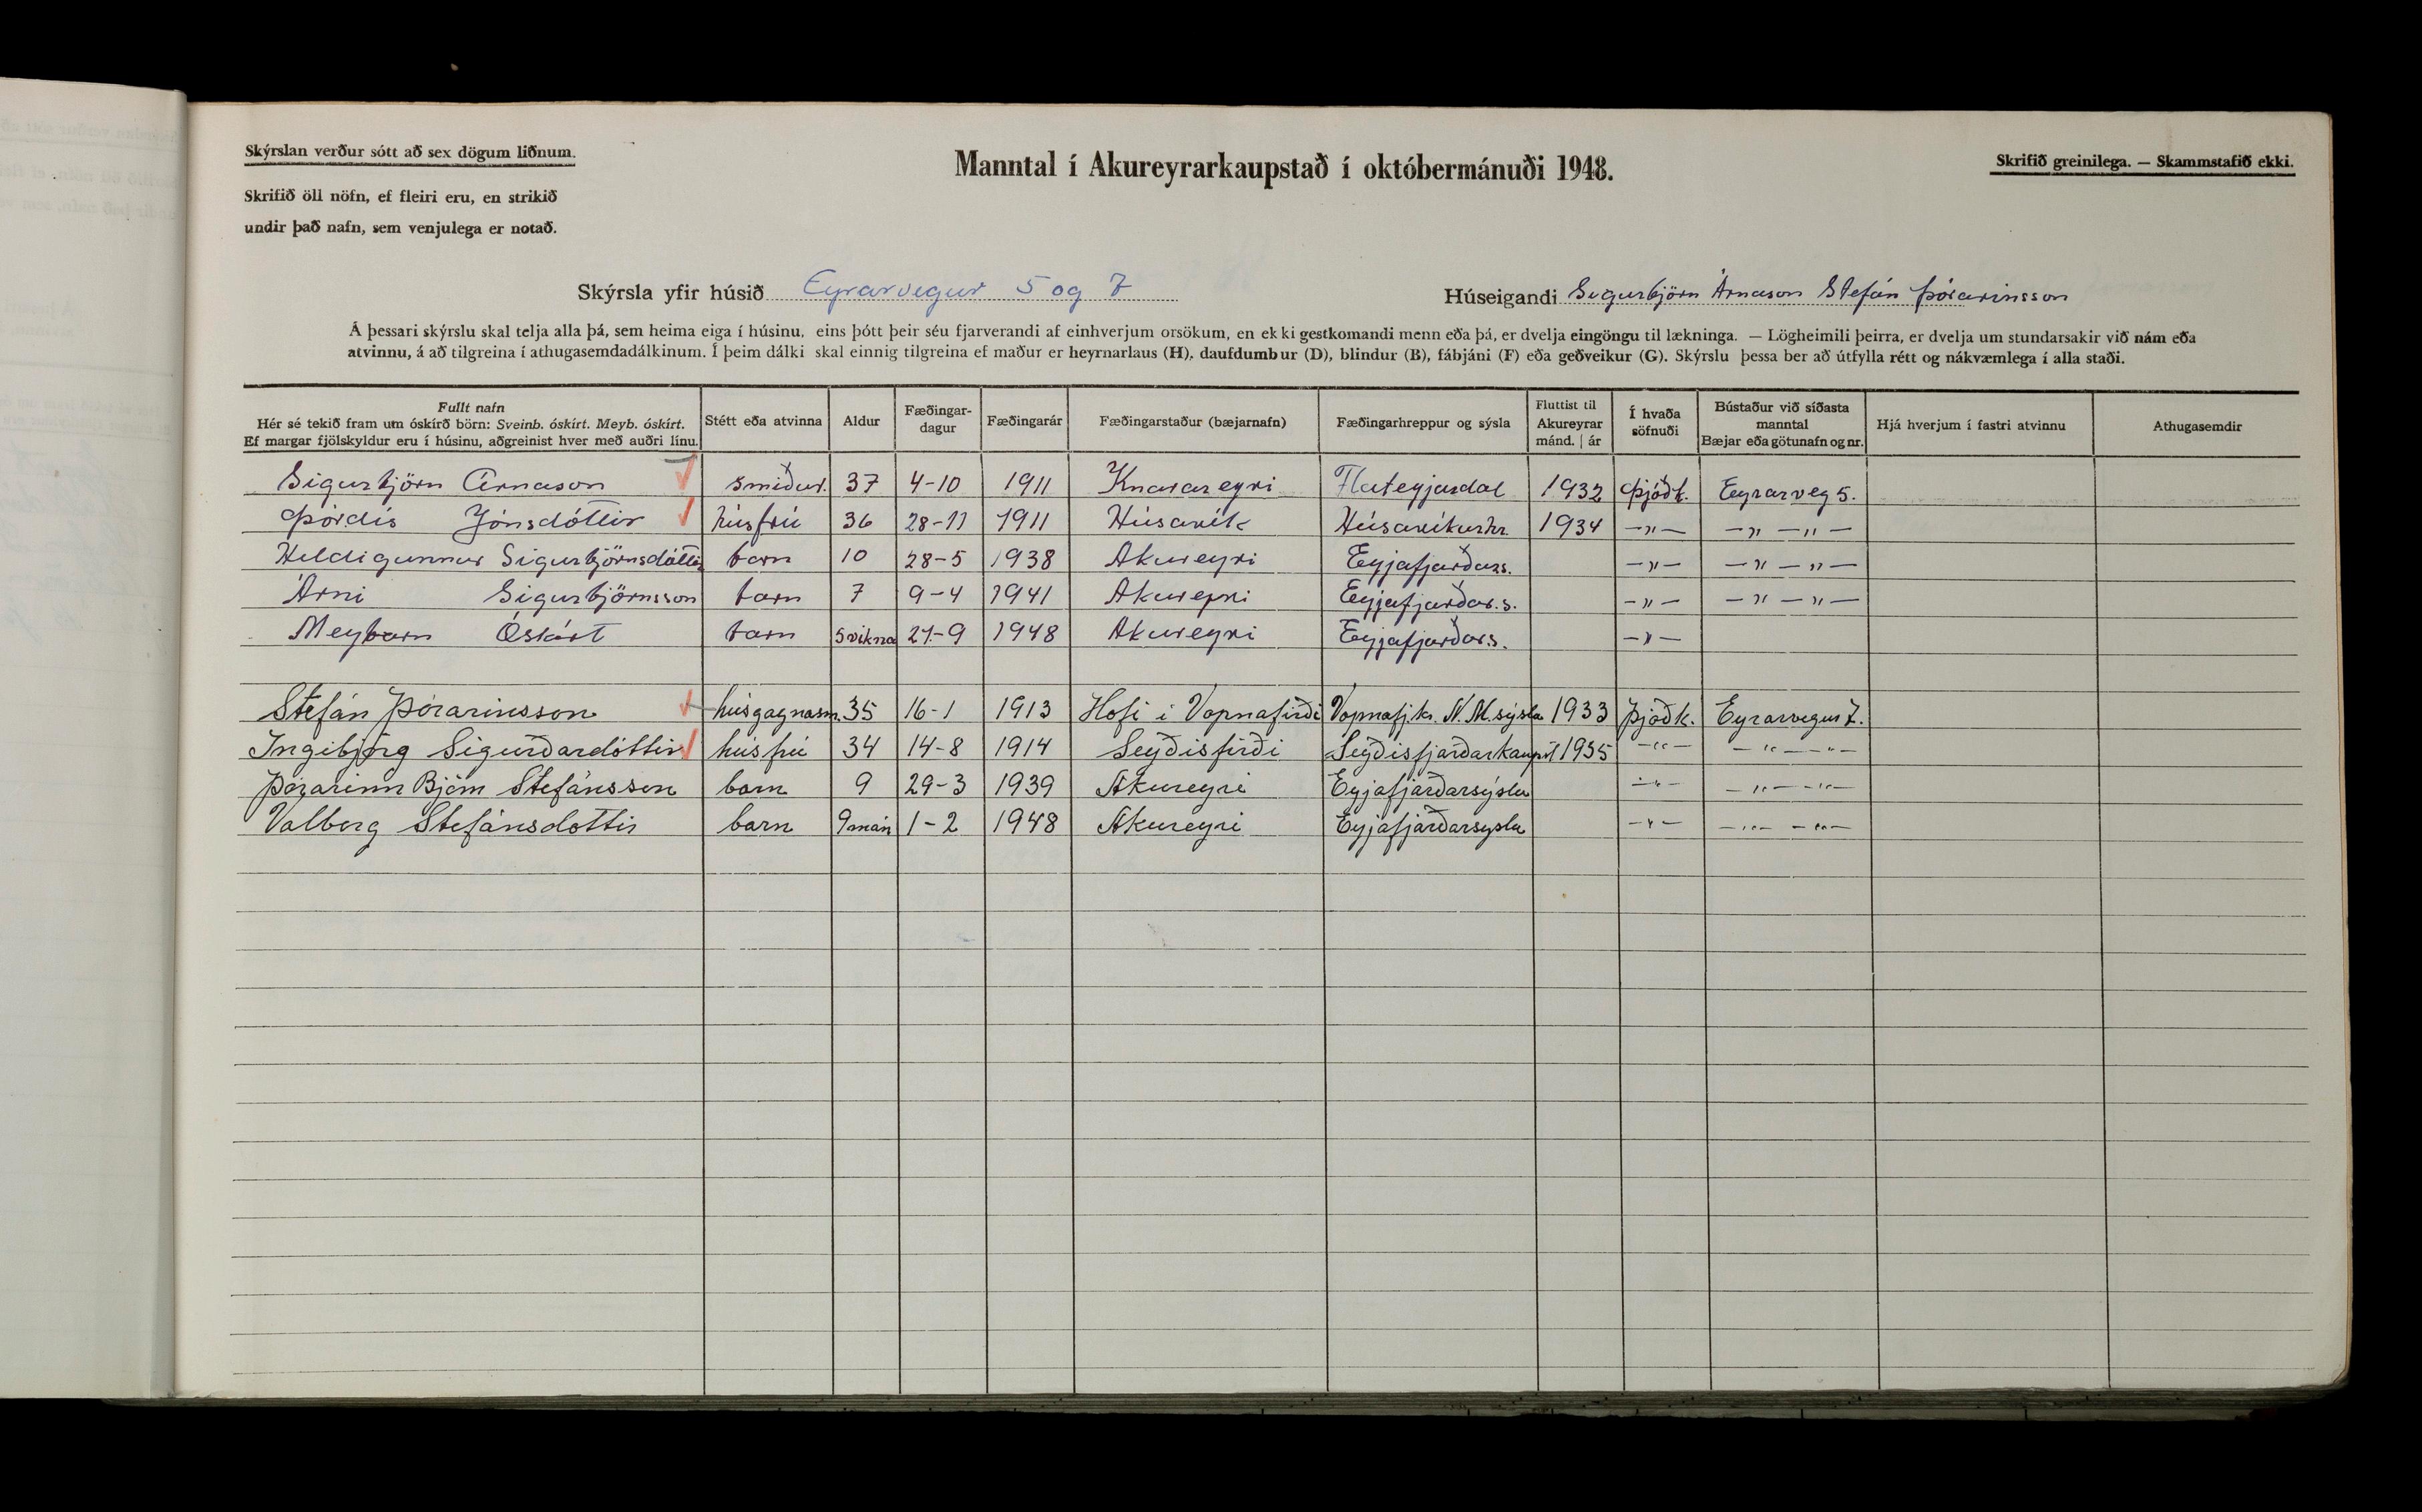 Skýrslan verður sótt að sex dögum liðnum.
Manntal í Akureyrarkaupstað í októbermánuði 1948.
Skrifið greinilega. — Skammstafið ekki.
Skrifið öll nöfn, ef fleiri eru, en strikið
undir það nafn, sem venjulega er notað.
Skýrsla yfir húsið Eyrarvegur 5 og 7
Húseigandi Sigurbjörn Árnason Stefán Þórarinsson
Á þessari skýrslu skal telja alla þá, sem heima eiga í húsinu, eins þótt þeir séu fjarverandi af einhverjum orsökum, en ekki gestkomandi menn eða þá, er dvelja eingöngu til lækninga. — Lögheimili þeirra, er dvelja um stundarsakir við nám eða
atvinnu, á að tilgreina í athugasemdadálkinum. Í þeim dálki skal einnig tilgreina ef maður er heyrnarlaus (H), daufdumbur (D), blindur (B), fábjáni (F) eða geðveikur (G). Skýrslu þessa ber að útfylla rétt og nákvæmlega í alla staði.
Fullt nafn
Hér sé tekið fram um óskírð börn: Sveinb. óskírt. Meyb. óskírt.
Ef margar fjölskyldur eru í húsinu, aðgreinist hver með auðri línu.
Stétt eða atvinna
Aldur
Fæðingar-
dagur
Fæðingarár
Fæðingarstaður (bæjarnafn)
Fæðingarhreppur og sýsla
Fluttist til
Akureyrar
mánd. | ár
Í hvaða
söfnuði
Bústaður við síðasta
manntal
Bæjar eða götunafn og nr.
Hjá hverjum í fastri atvinnu
Athugasemdir
Sigurbjörn Árnason smiður. 37 4-10 1911 Knarareyri Flateyjardal 1932 Þjóðk. Eyrarveg 5.
Þórdís Jónsdóttir húsfrú 36 28-11 1911 Húsavík Húsavíkurhr. 1934 —"— —"— —"—
Hildigunnur Sigurbjörnsdóttir barn 10 28-5 1938 Akureyri Eyjafjarðars. —"— —"— —"—
Árni Sigurbjörnsson barn 7 9-4 1941 Akureyri Eyjafjarðar.s. —"— —"— —"—
Meybarn Óskírt barn 5 vikna 21-9 1948 Akureyri Eyjafjarðars. —"—
Stefán Þórarinsson húsgagnasm. 35 16-1 1913 Hofi í Vopnafirði Vopnafj.hr. N.M.sýsla 1933 Þjóðk. Eyrarvegur 7.
Ingibjörg Sigurðardóttir húsfrú 34 14-8 1914 Seyðisfirði Seyðisfjarðarkaupst 1935 —"— —"— —"—
Þórarinn Björn Stefánsson barn 9 29-3 1939 Akureyri Eyjafjarðarsýslu —"— —"— —"—
Valberg Stefánsdóttir barn 9 mán 1-2 1948 Akureyri Eyjafjarðarsýslu —"— —"— —"—